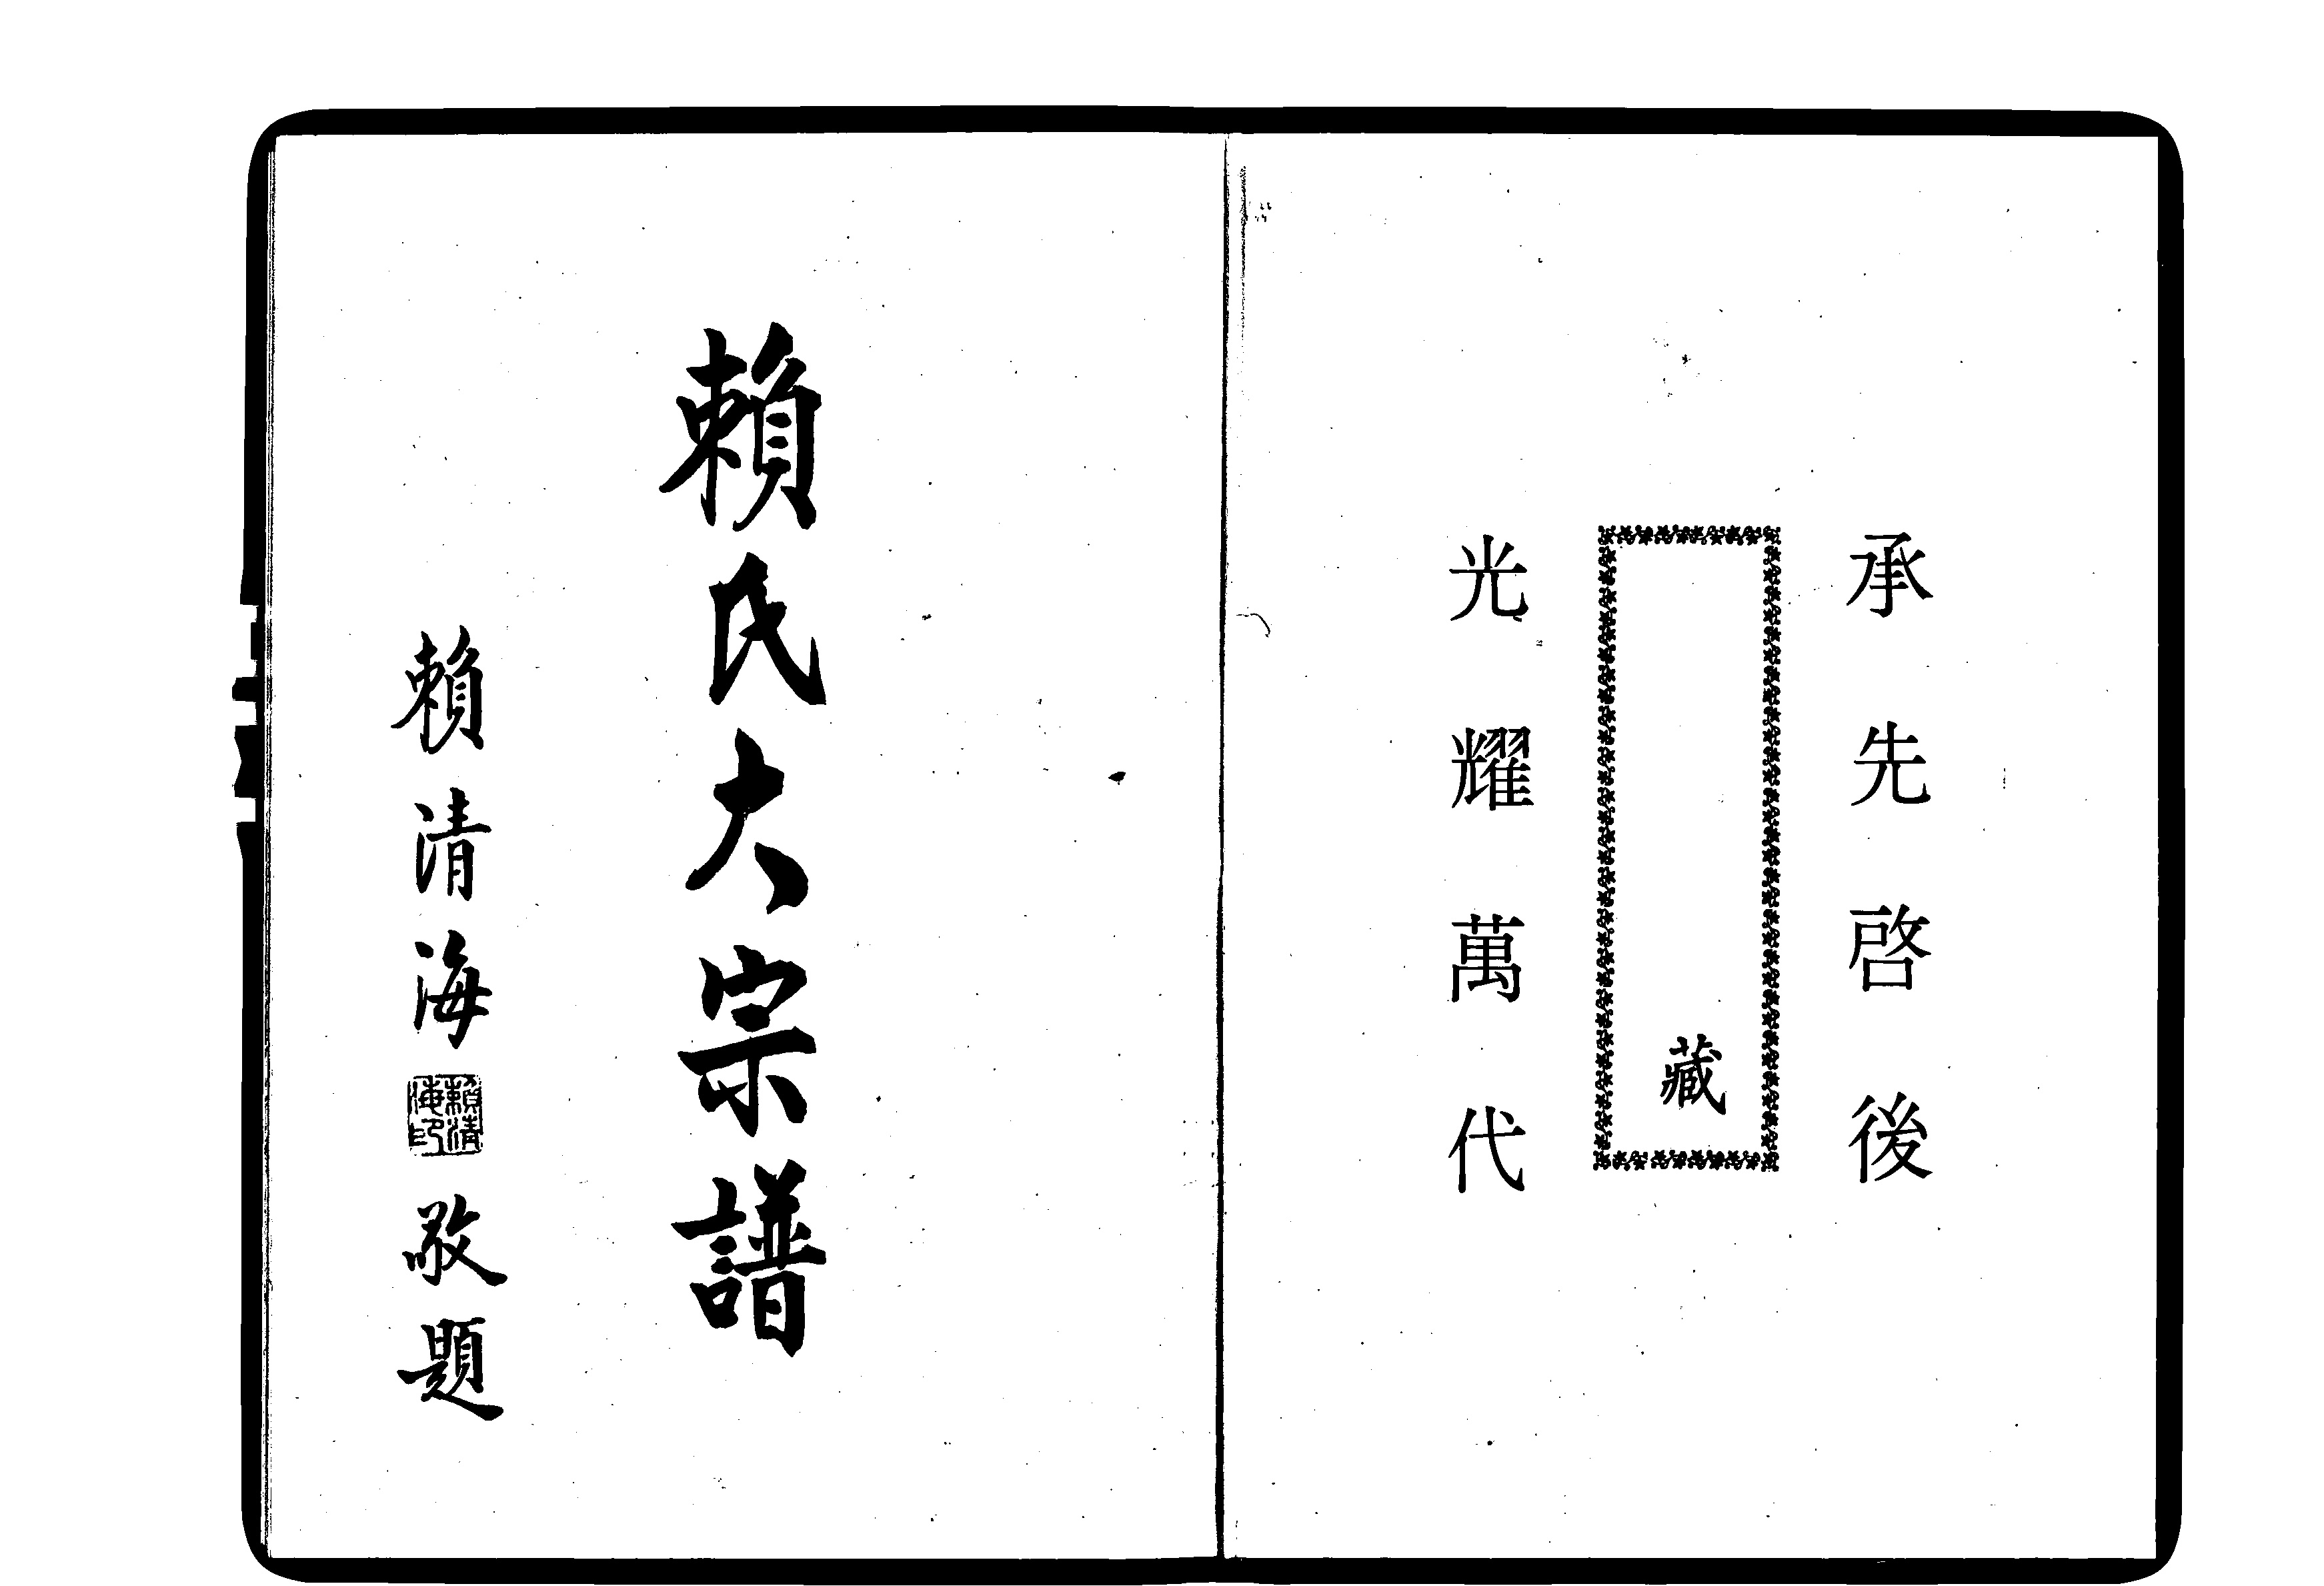 承先啓後
藏
光耀萬代
賴氏大宗譜
賴清海
賴清海印
敬題